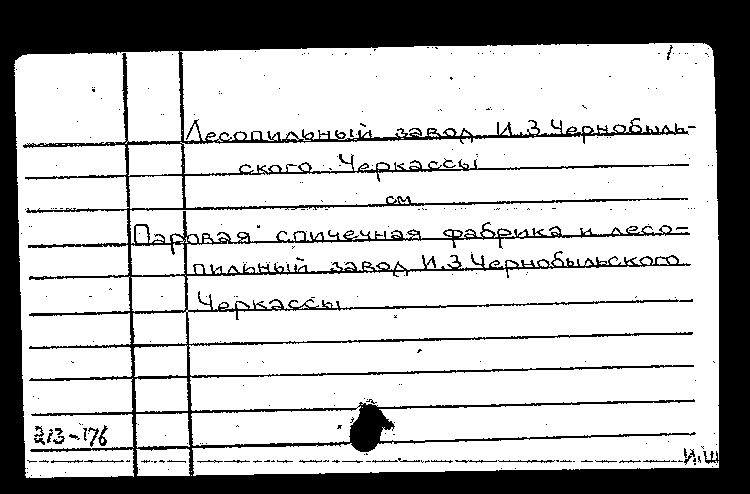 Лесопильный завод И.З.Чернобыль-
ского. Черкассы
см
Паровая спичечная фабрика и лесо=
пильный завод И.З.Чернобыльского
Черкассы
213-176
И.Ш